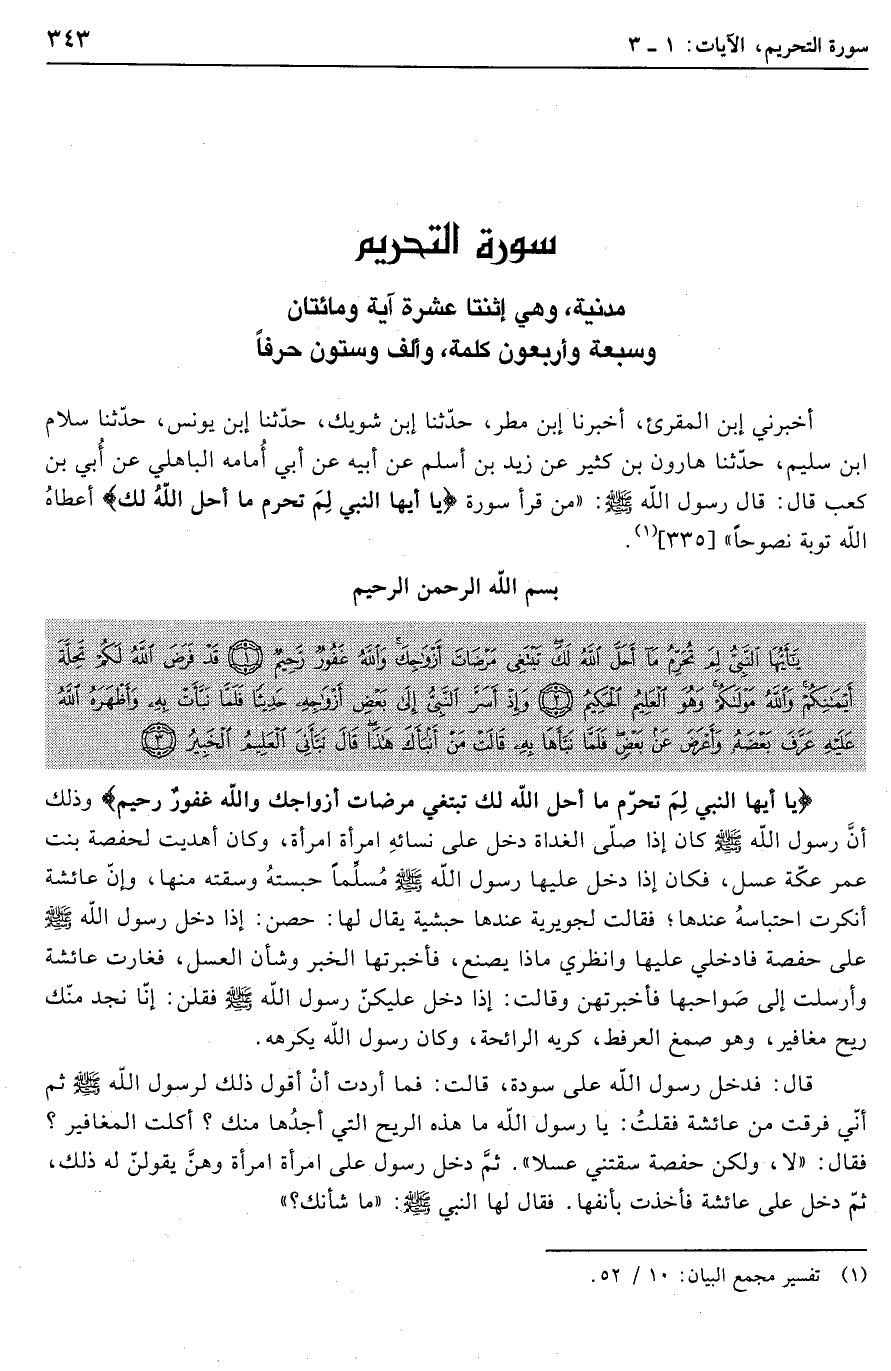 سورة التحريم، الآيات: ١ ـ ٣
٣٤٣
سورة التحريم
مدنية، وهي إثنتا عشرة آية ومائتان
وسبعة وأربعون كلمة، وألف وستون حرفاً
أخبرني إبن المقرئ، أخبرنا إبن مطر، حدّثنا إبن شويك، حدّثنا إبن يونس، حدّثنا سلام
ابن سليم، حدّثنا هارون بن كثير عن زيد بن أسلم عن أبيه عن أبي أُمامه الباهلي عن أُبي بن
كعب قال: قال رسول الله ﷺ: «من قرأ سورة ﴿يا أيها النبي لِمَ تحرم ما أحل اللّهُ لك﴾ أعطاهُ
الله توبة نصوحاً» [٣٣٥](١).
بسم اللّه الرحمن الرحيم
يَٰٓأَيُّهَا ٱلنَّبِيُّ لِمَ تُحَرِّمُ مَآ أَحَلَّ ٱللَّهُ لَكَۖ تَبْتَغِي مَرْضَاتَ أَزْوَٰجِكَۚ وَٱللَّهُ غَفُورٌ رَّحِيمٌ ١ قَدْ فَرَضَ ٱللَّهُ لَكُمْ تَحِلَّةَ
أَيْمَٰنِكُمْۚ وَٱللَّهُ مَوْلَىٰكُمْۖ وَهُوَ ٱلْعَلِيمُ ٱلْحَكِيمُ ٢ وَإِذْ أَسَرَّ ٱلنَّبِيُّ إِلَىٰ بَعْضِ أَزْوَٰجِهِۦ حَدِيثًا فَلَمَّا نَبَّأَتْ بِهِۦ وَأَظْهَرَهُ ٱللَّهُ
عَلَيْهِ عَرَّفَ بَعْضَهُۥ وَأَعْرَضَ عَنۢ بَعْضٍۖ فَلَمَّا نَبَّأَهَا بِهِۦ قَالَتْ مَنْ أَنۢبَأَكَ هَٰذَاۖ قَالَ نَبَّأَنِيَ ٱلْعَلِيمُ ٱلْخَبِيرُ ٣
﴿يا أيها النبي لِمَ تحرّم ما أحل الله لك تبتغي مرضات أزواجك والله غفورٌ رحيم﴾ وذلك
أنَّ رسول الله ﷺ كان إذا صلّى الغداة دخل على نسائهِ امرأة امرأة، وكان أهديت لحفصة بنت
عمر عكّة عسل، فكان إذا دخل عليها رسول الله ﷺ مُسلِّماً حبستهُ وسقته منها، وإنّ عائشة
أنكرت احتباسهُ عندها؛ فقالت لجويرية عندها حبشية يقال لها: حصن: إذا دخل رسول الله ﷺ
على حفصة فادخلي عليها وانظري ماذا يصنع، فأخبرتها الخبر وشأن العسل، فغارت عائشة
وأرسلت إلى صَواحبها فأخبرتهن وقالت: إذا دخل عليكنّ رسول الله ﷺ فقلن: إنّا نجد منّك
ريح مغافير، وهو صمغ العرفط، كريه الرائحة، وكان رسول الله يكرهه.
قال: فدخل رسول الله على سودة، قالت: فما أردت أنْ أقول ذلك لرسول الله ﷺ ثم
أنّي فرقت من عائشة فقلتُ: يا رسول الله ما هذه الريح التي أجدُها منك ؟ أكلت المغافير ؟
فقال: «لا، ولكن حفصة سقتني عسلا». ثمَّ دخل رسول على امرأة امرأة وهنَّ يقولنّ له ذلك،
ثمّ دخل على عائشة فأخذت بأنفها. فقال لها النبي ﷺ: «ما شأنك؟»
(١) تفسير مجمع البيان: ١٠ / ٥٢.